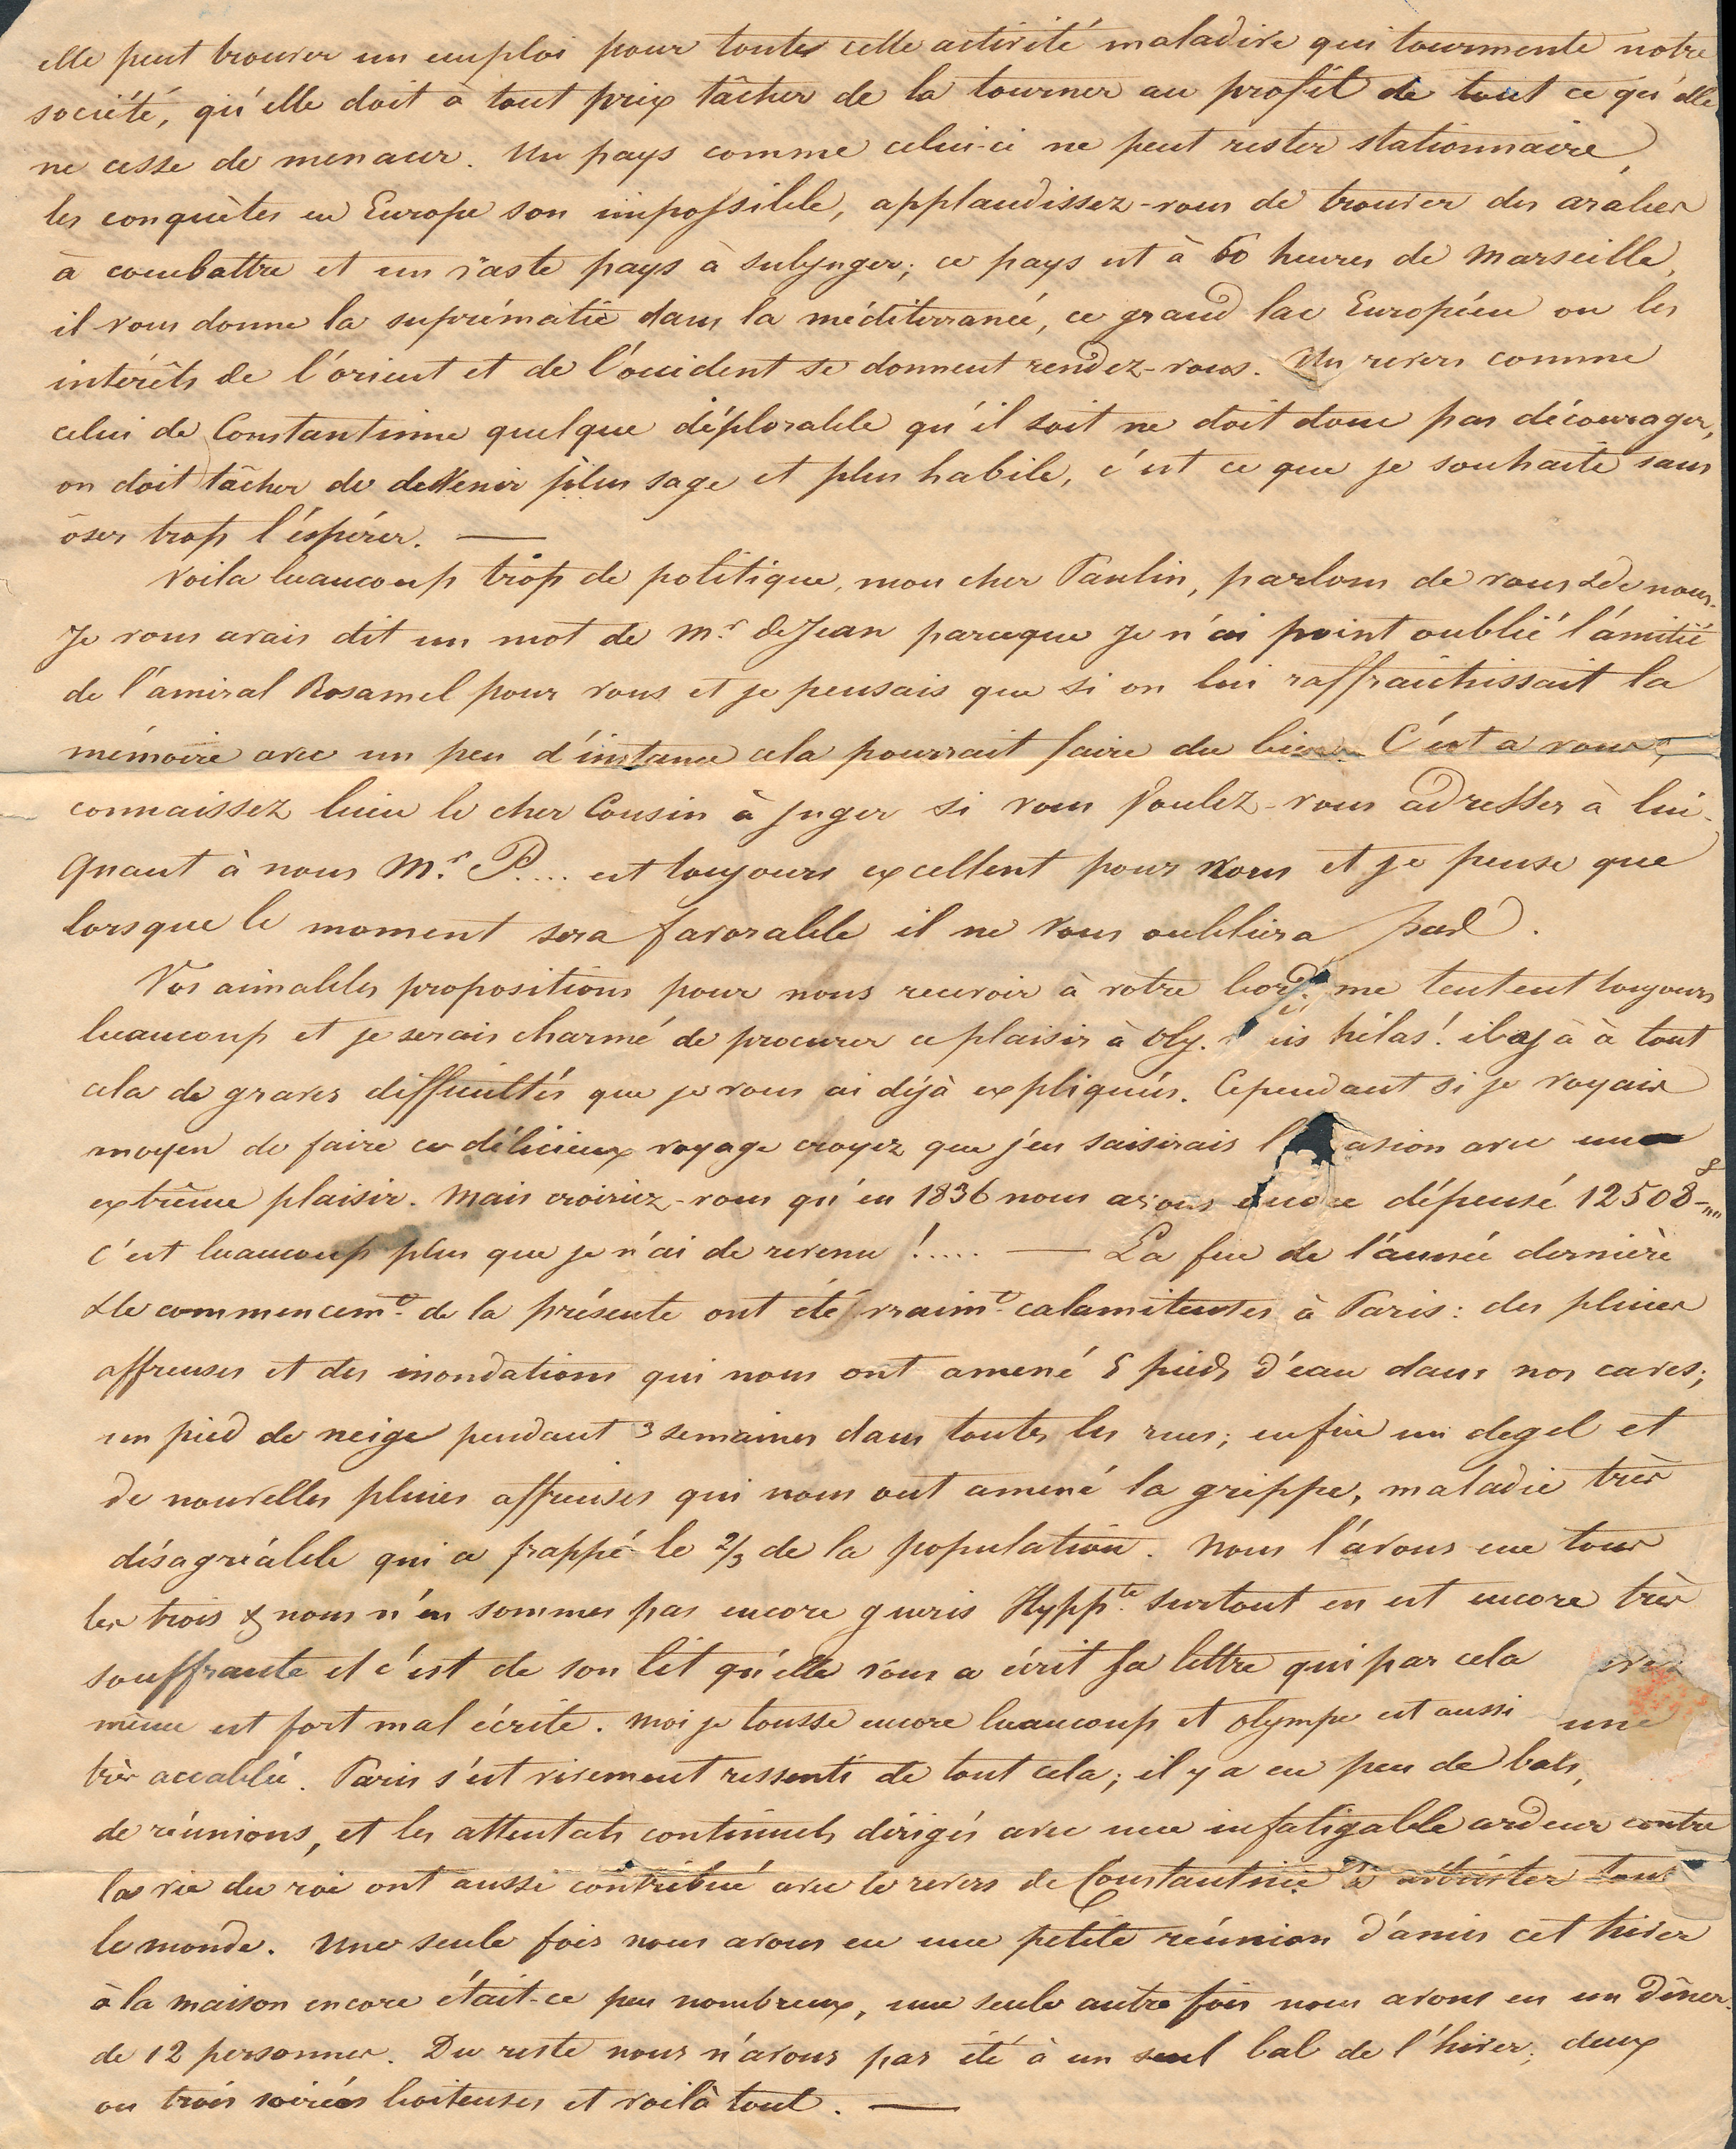 elle peut trouver un emploi pour toute cette activité maladive qui tourmente notre
société, qu'elle doit à tout prix tâcher de la tourner au profit de tout ce qu'elle
ne cesse de menacer. Un pays comme celui-ci ne peut rester stationnaire,
les conquètes en Europe son impossible, applaudissez-vous de trouver des arabes
à combattre et un vaste pays à subjuger; ce pays est à 60 heures de Marseille,
il vous donne la suprématie dans la méditerranée, ce grand lac Européen ou les
intérêts de l'orient et de l'occident se donnent rendez-vous. Un revers comme
celui de Constantinne quelque déplorable qu'il soit ne doit donc pas décourager,
on doit tâcher de devenir plus sage et plus habile, c'est ce que je souhaite sans
ôser trop l'éspérer. —
Voila beaucoup trop de politique, mon cher Paulin, parlons de vous & de nous.
Je vous avais dit un mot de Mr. de Jean parceque je n'ai point oublié l'amitié
de l'amiral Rosamel pour vous et je pensais que si on lui raffraichissait la
mémoire avec un peu d'instance cela pourrait faire du bien. C'est a vous,
connaissez bien le cher Cousin à juger si vous voulez-vous adresser à lui.
Quant à nous Mr. P.... est toujours excellent pour nous et je pense que
lorsque le moment sera favorable il ne vous oubliera pas.
Vos aimables propositions pour nous recevoir à votre bord me tentent toujours
beaucoup et je serais charmé de procurer ce plaisir à Oly. is hélas! il y à à tout
cela de graves difficultés que je vous ai déjà expliquées. Cependant si je voyais
moyen de faire ce délicieux voyage croyez que j'en saisirais l' asion avec un
extrême plaisir. Mais croiriez-vous qu'en 1836 nous avons encore dépensé 12508
c'est beaucoup plus que je n'ai de revenu !..... — La fin de l'année dernière
& le commencemt. de la présente ont été vraimt. calamiteuses à Paris: des pluies
affreuses et des inondations qui nous ont amené 5 pieds d'eau dans nos caves;
un pied de neige pendant 3 semaines dans toutes les rues; enfin un degel et
de nouvelles pluies affreuses qui nous ont amené la grippe, maladie très
désagréable qui a frappé le 2/3 de la population. Nous l'avons eue tous
les trois & nous n'en sommes pas encore gueris Hyppte surtout en est encore très
souffrante et c'est de son lit qu'elle vous a écrit sa lettre qui par cela
même est fort mal écrite. Moi je tousse encore beaucoup et Olympe est aussi une
très accablée. Paris s'est vivement ressenti de tout cela; il y a eu peu de bals,
de réunions, et les attentats continuels dirigés avec une infatigable ardeur contre
la vie du roi ont aussi contribué avec le revers de Constantine à attrister tout
le monde. Une seule fois nous avons eu une petite réunion d'amis cet hiver
à la maison encore était-ce peu nombreux, une seule autre fois nous avons eu un dîner
de 12 personnes. Du reste nous n'avons pas été à un seul bal de l'hiver; deux
ou trois soirées boiteuses et voilà tout. —